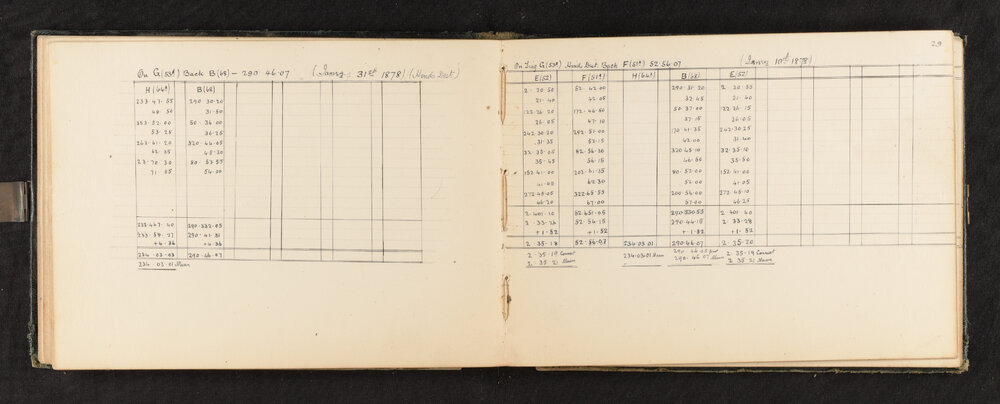 On G (53A) Back B (68) - 290. 46.07 (Janry. 31st 1878) (Hood. Dist.)
H (64A) B (68)
233.47.55 290.30.20
48.50 31.50
353.52.00 50.36.00
53.25 36.25
263.41.20 320.44.05
42.35 45.30
23.70.30 80.53.55
71.05 54.00
233.447.40 290.332.05
233.58.27 290.41.31
+4.36 +4.36
234.03.03 290.46.07
234.03.01 Mean
29
G (53A) Hood. Dist. Back F (51A) 52.56.07 (Janry 10th 1878)
E (52) F (51A) H (64A) B (68) E (52)
2.20.50 52.42.00 290.31.20 2.20.55
21.40 42.05 32.45 21.40
122.26.20 172.46.50 50.37.00 122.26.15
26.05 47.10 37.15 26.05
242.30.20 292.51.00 170.41.35 242.30.25
31.35 53.15 42.00 31.40
32.35.05 82.56.30 320.45.10 32.35.10
35.45 56.15 46.50 35.50
152.41.00 202.61.35 80.52.00 152.41.00
41.05 62.30 52.00 41.05
272.45.05 322.65.55 200.56.00 272.45.10
46.20 67.00 57.00 46.25
2.401.10 52.651.05 290.530.55 2.401.40
2.33.26 52.54.15 290.44.15 2.33.28
+1.52 +1.52 +1.52 +1.52
2.35.18 52.56.07 234.03.01 290.46.07 2.35.20
2.35.19 Correct 290.46.07 Mean 2.35.19 Correct
2.35.21 Mean 2.35.21 Mean